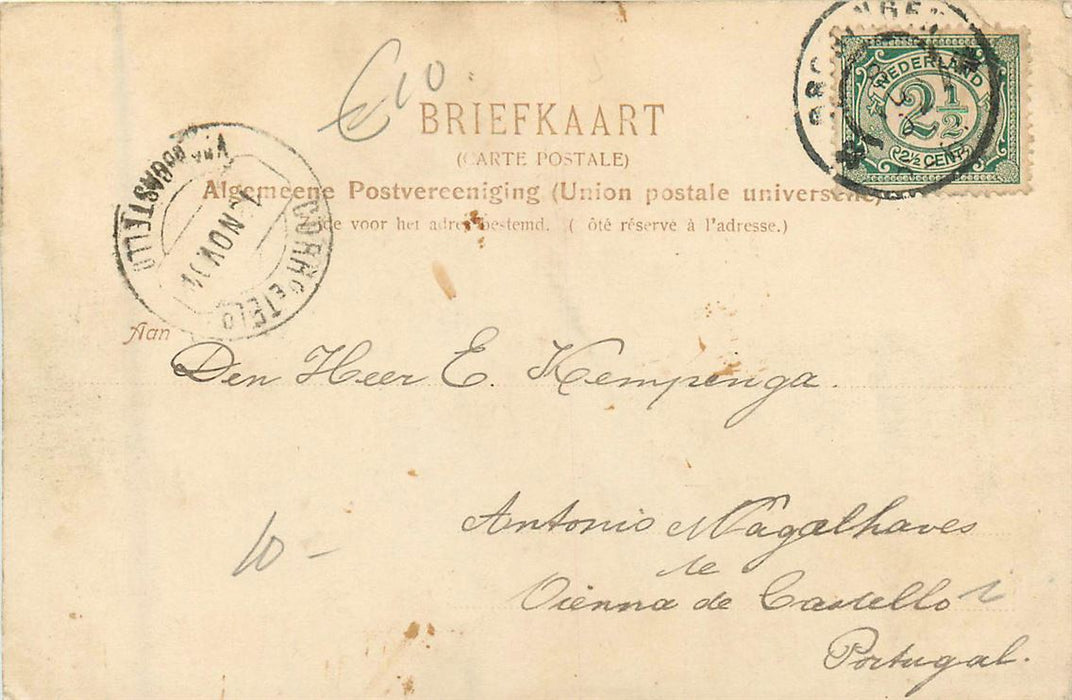 €10.
BRIEFKAART
(CARTE POSTALE)
Algemeene Postvereeniging (Union postale universelle)
de voor het adres bestemd. ( ôté réservé à l'adresse.)
NEDERLAND
2½
2½ CENT
NOV
Aan
Den Heer E. Kempenga.
Antonio Magalhaves
te
Vienna de Castello
Portugal.
10 -